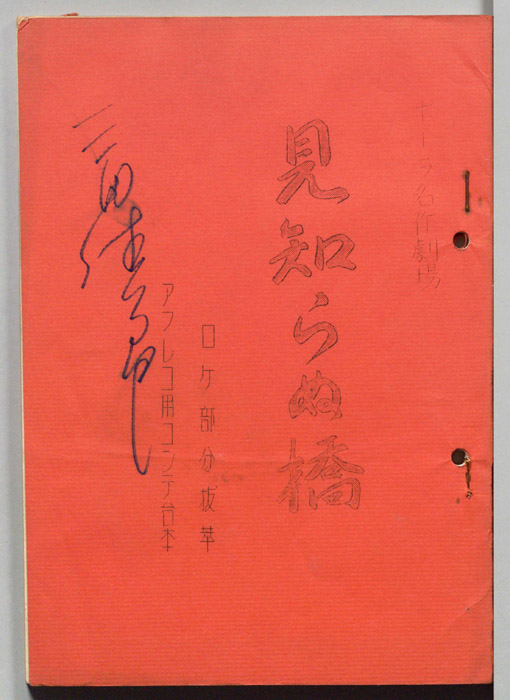 オーラ名作劇場
見知らぬ橋
ロケ部分抜萃
アフレコ用コンテ台本